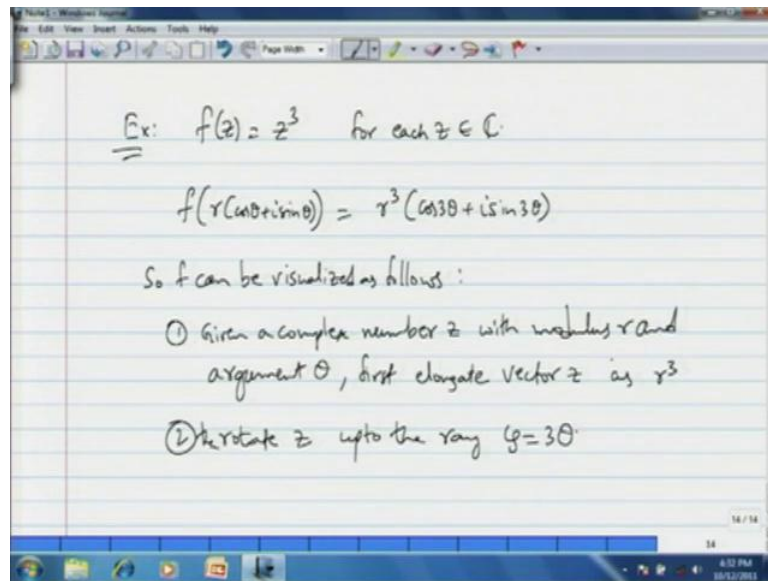 Note1 - Windows Journal
File Edit View Insert Actions Tools Help
Page Width
Ex: f(z) = z³ for each z ∈ ℂ.
f(r(cosθ+isinθ)) = r³(cos3θ + isin3θ)
So f can be visualized as follows :
① Given a complex number z with modulus r and
argument θ, first elongate vector z as r³
② rotate z upto the ray φ=3θ.
14 / 14
14
4:32 PM
10/12/2011